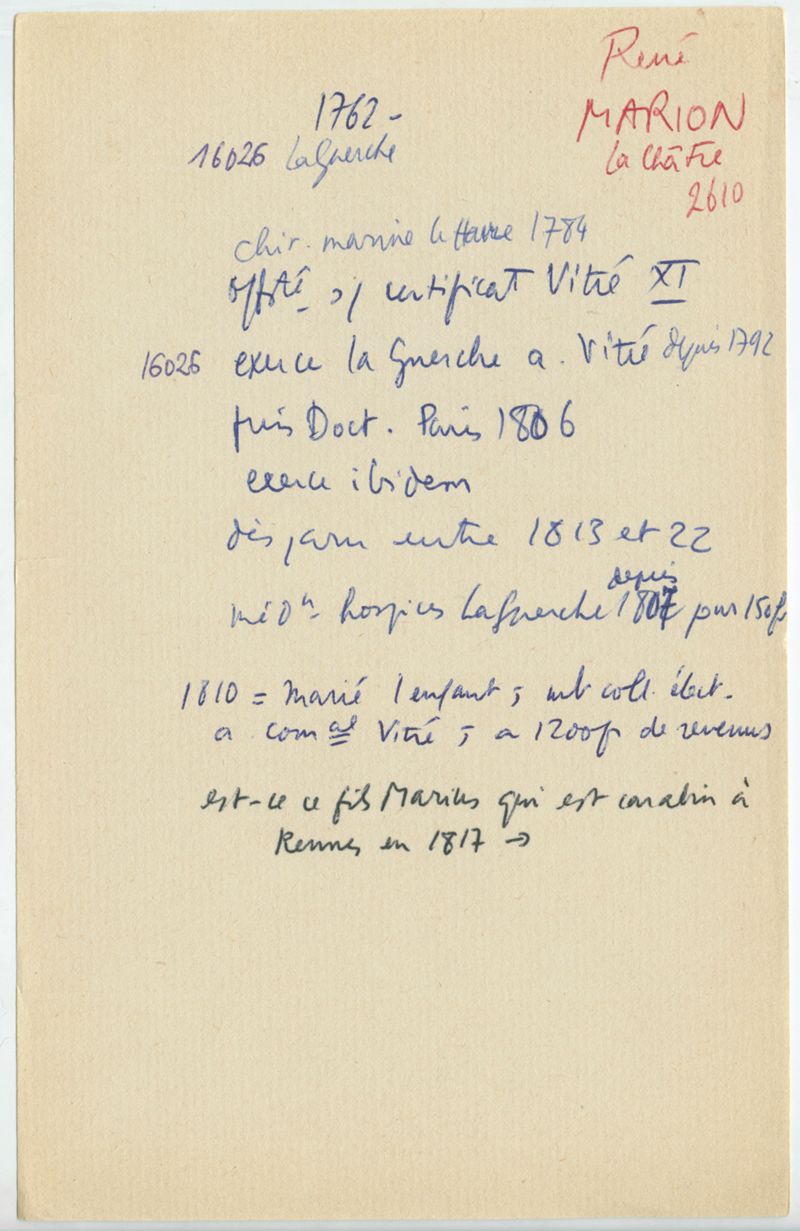 René
MARION
La Châtre
2610
1762 -
16026 La Guerche
chir. marine le Havre 1784
offsté s/ certificat Vitré XI
16026 exerce la Guerche a. Vitré depuis 1792
puis Doct. Paris 1806
exerce ibidem
dès, entre 1813 et 22
depuis
méd n hospices La Guerche 1807 pour 150f
1810 = marié 1 enfant ; mb coll. élect.
a com al Vitré ; a 1200f de revenus
est-ce ce fils Marius qui est carabin à
Rennes en 1817 →